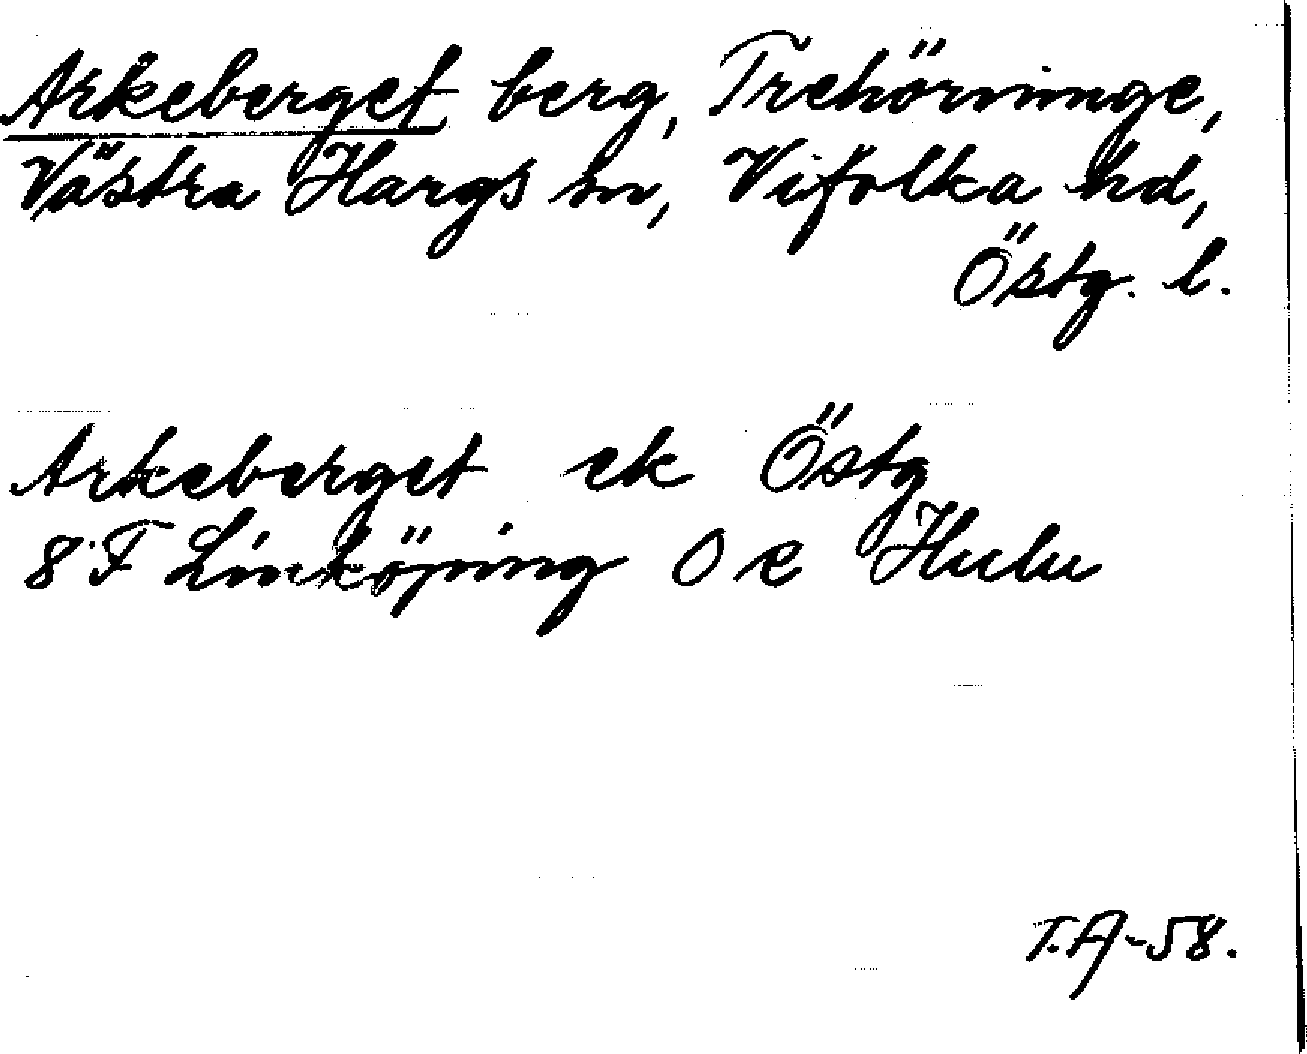 Arkeberget berg, Trehörninge,
Västra Hargs sn, Vifolka hd,
Östg. l.
Arkeberget ek Östg
8 F Linköping 0 e Hulu
T.A-58.